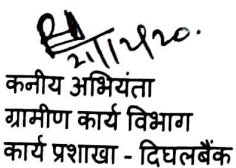 21/12/20.
कनीय अभियंता
ग्रामीण कार्य विभाग
कार्य प्रशाखा - दिघलबैंक